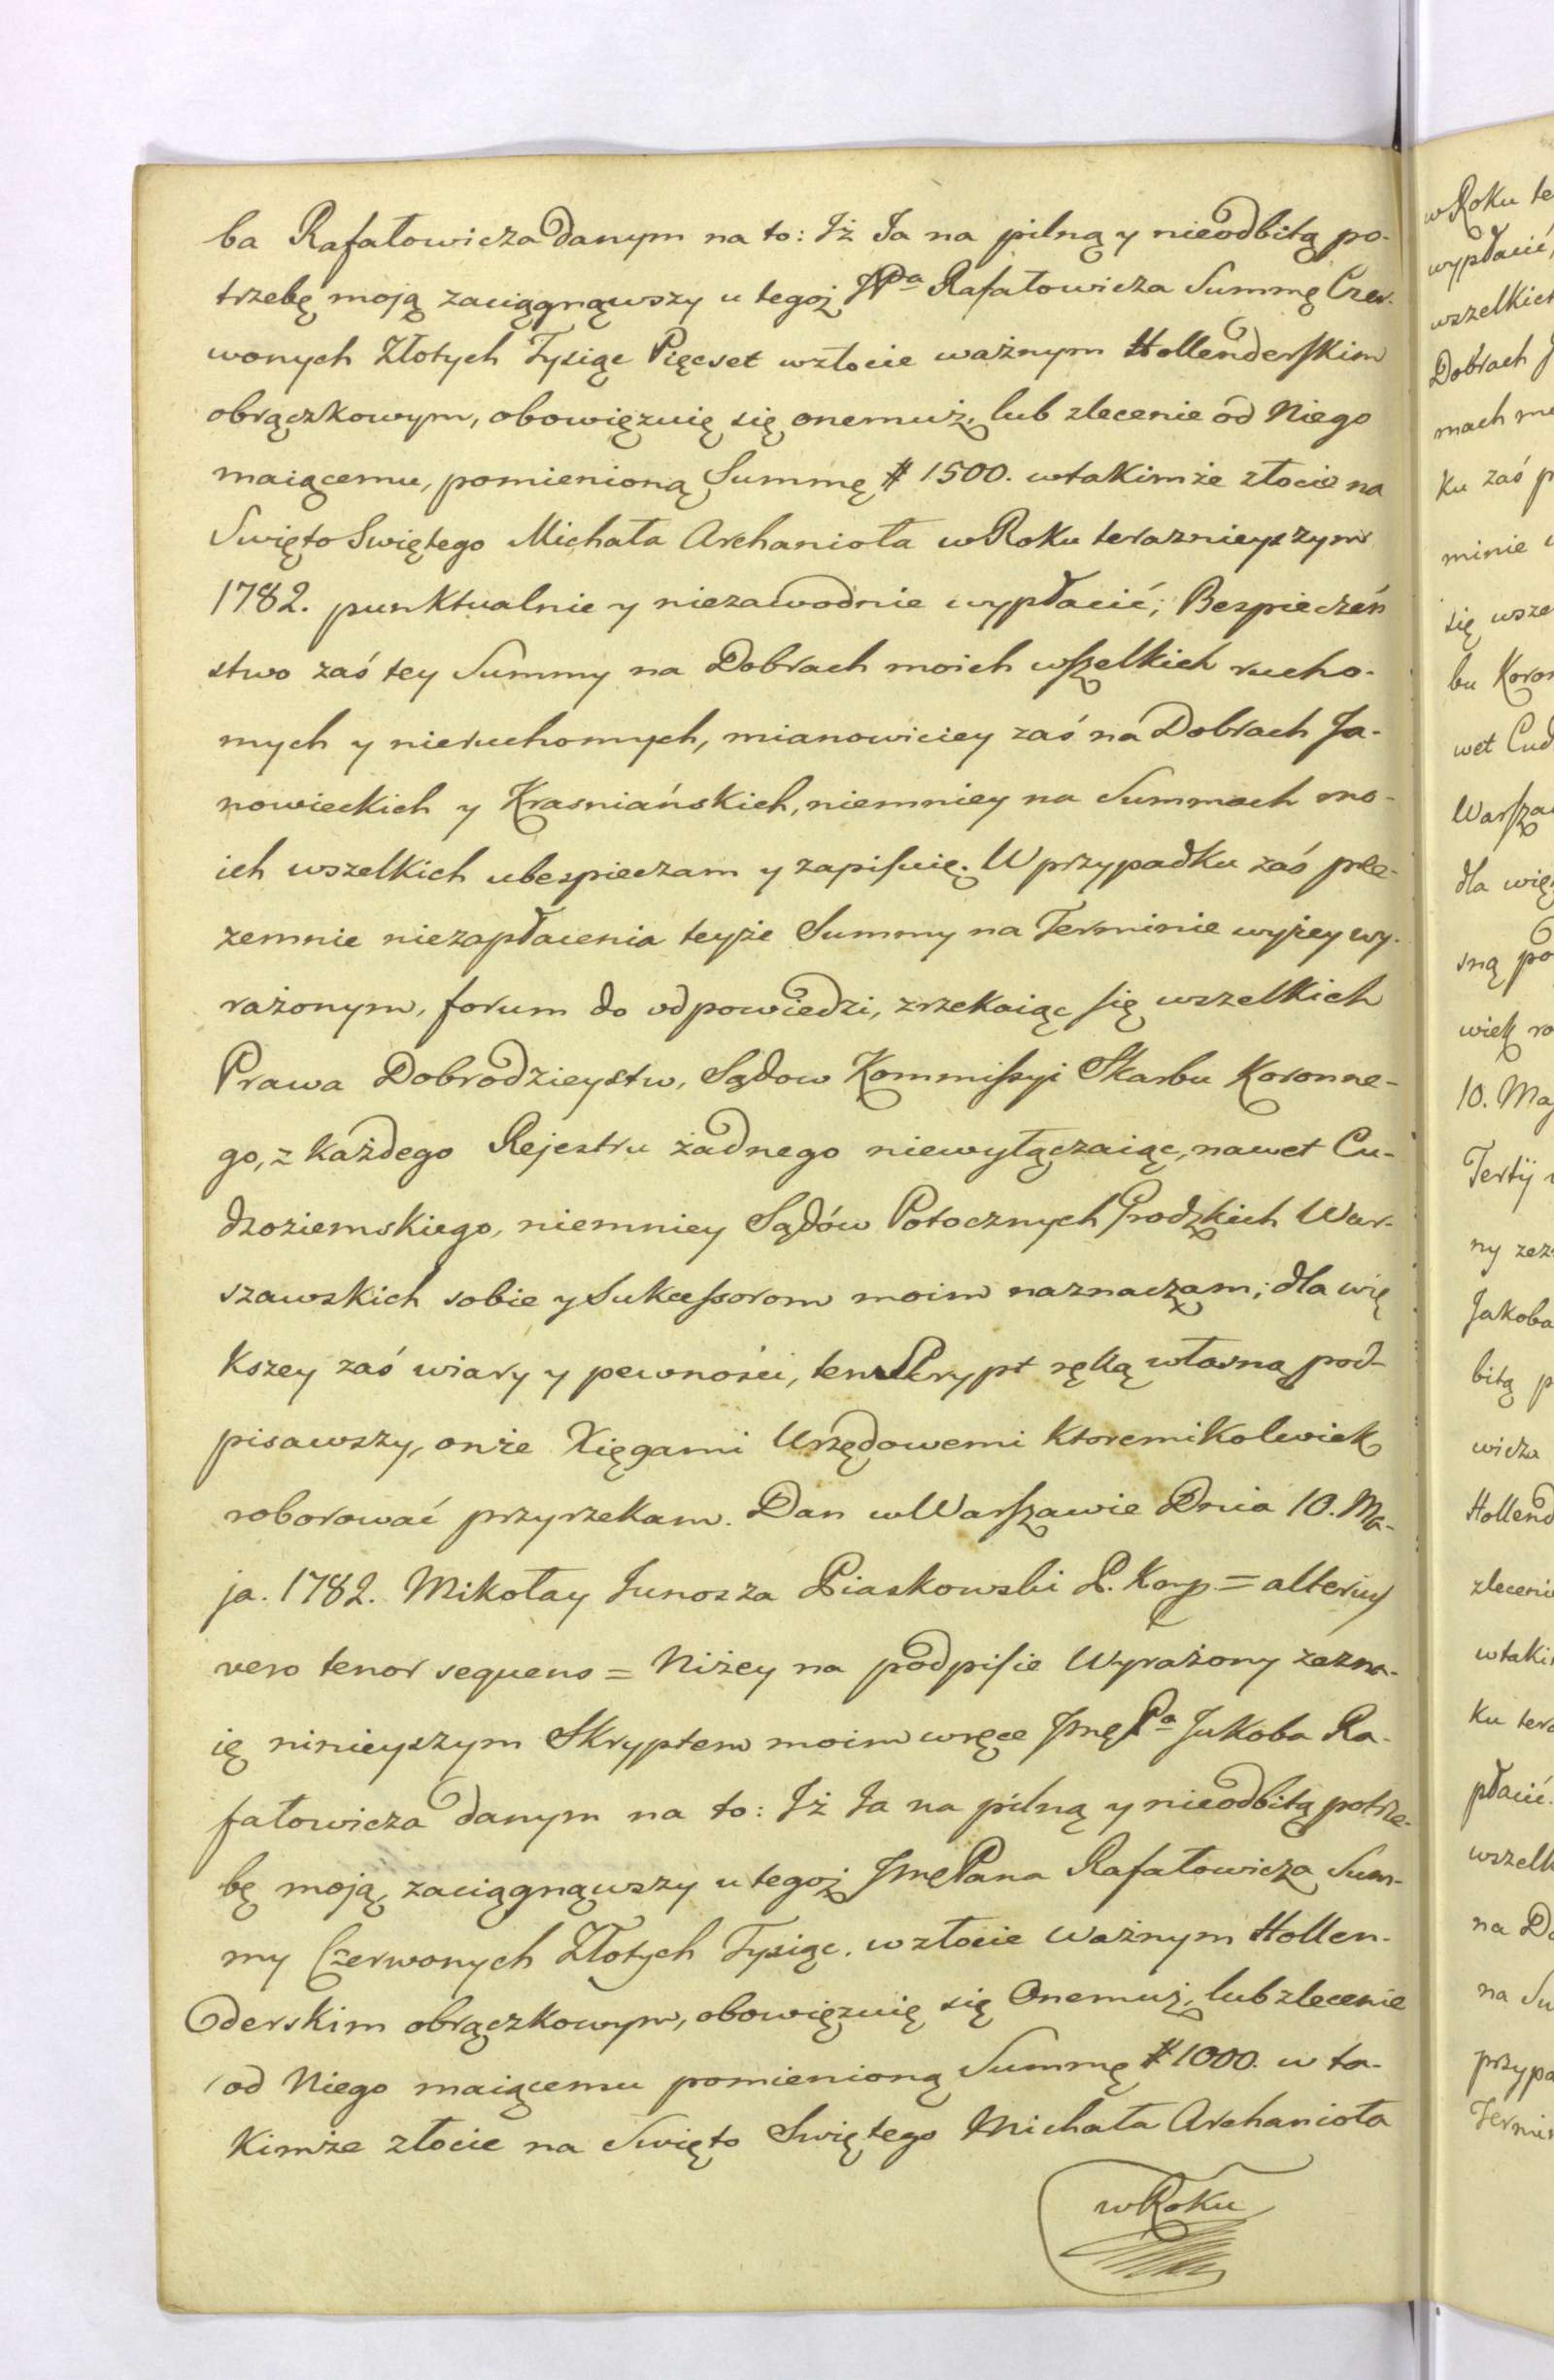 ba Rafałowicza danym na to: Iż Ja na pilną y nieodbitą po-
trzebę moją zaciągnąwszy u tegoż JPa Rafałowicza Summę Czer-
wonych Złotych Tysiąc Pięcset wzłocie ważnym Hollenderskim
obrączkowym, obowięzuię się onemuż, lub zlecenie od Niego
maiącemu, pomienioną Summę # 1500. wtakimże złocie na
Swięto Swiętego Michała Archanioła w Roku teraznieyszym
1782. punktualnie y niezawodnie wypłacić; Bezpieczeń
stwo zaś tey Summy na Dobrach moich wszelkich rucho-
mych y nieruchomych, mianowiciey zaś na Dobrach Ja-
nowieckich y Krasniańskich, niemniey na Summach mo-
ich wszelkich ubezpieczam y zapisuię. W przypadku zaś prze-
zemnie niezapłacenia teyże Summy na Terminie wyżey wy-
rażonym, forum do odpowiedzi, zrzekaiąc się wszelkich
Prawa Dobrodzieystw, Sądow Kommissyi Skarbu Koronne-
go, z każdego Rejestru żadnego niewyłączaiąc, nawet Cu-
dzoziemskiego, niemniey Sądów Potocznych Grodzkich War-
szawskich sobie y Sukcessorom moim naznaczam; dla wię
kszey zaś wiary y pewności, ten Skrypt ręką własną pod-
pisawszy, onże Xięgami Urzędowemi ktoremikolwiek
roborować przyrzekam. Dan w Warszawie Dnia 10. Ma-
ja. 1782. Mikołay Junosza Piaskowski P. Krz. = alterius
vero tenor sequens = Niżey na podpisie Wyrażony zezna-
ię ninieyszym Skryptem moim wręce Jmę Pa Jakoba Ra-
fałowicza danym na to: Iż Ja na pilną y nieodbitą potrze-
bę moją, zaciągnąwszy u tegoż Jmę Pana Rafałowicza Sum-
my Czerwonych Złotych Tysiąc. wzłocie ważnym Hollen-
derskim obrączkowym, obowięzuię się Onemuż, lub zlecenie
od Niego maiącemu pomienioną Summę # 1000. w ta-
kimże złocie na Swięto Swiętego Michała Archanioła
w Roku
w Roku te
wypłacić,
wszelkich
Dobrach J
mach mo
ku zaś p
minie w
się wsze
bu Koron
wet Cud
Warsza
dla więk
sną po
wiek ro
10. Maj
Tertij
ny zez
Jakoba
bitą p
wicza
Hollend
zlecenie
wtakim
ku tera
płacić.
wszelk
na Do
na Su
przypa
Termin